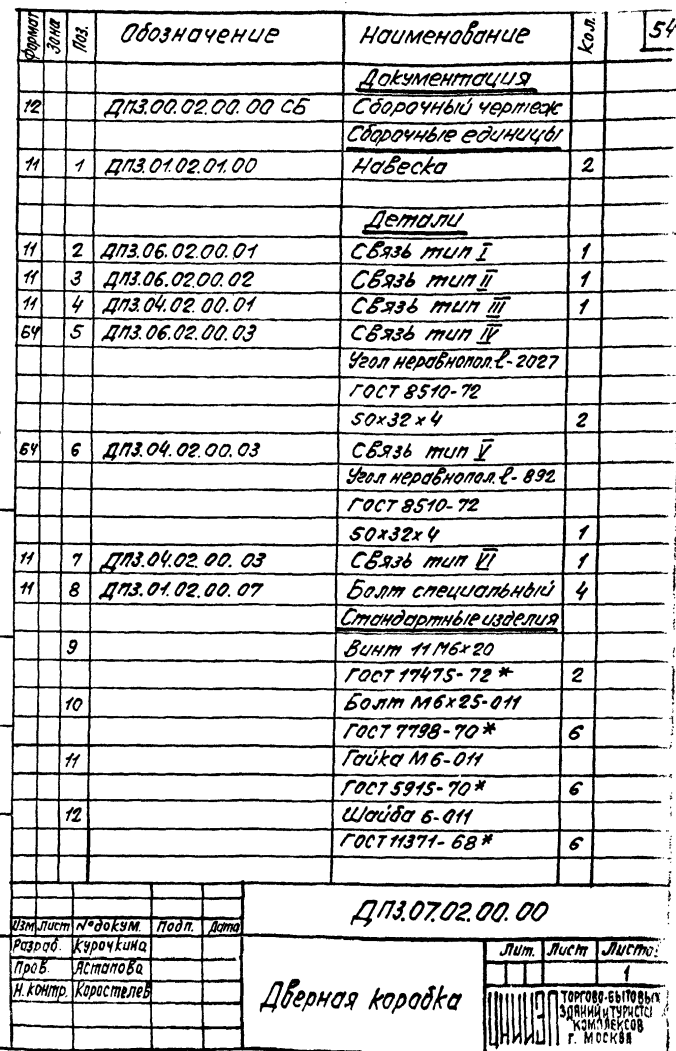 Формат Зона Поз. Обозначение Наименование Кол. 54
Документация
12 ДП3.00.02.00.00 СБ Сборочный чертеж
Сборочные единицы
11 1 ДП3.01.02.01.00 Навеска 2
Детали
11 2 ДП3.06.02.00.01 Связь тип I 1
11 3 ДП3.06.02.00.02 Связь тип II 1
11 4 ДП3.04.02.00.01 Связь тип III 1
БЧ 5 ДП3.06.02.00.03 Связь тип IV
Угол неравнопол. ℓ-2027
ГОСТ 8510-72
50×32×4 2
БЧ 6 ДП3.04.02.00.03 Связь тип V
Угол неравнопол. ℓ-892
ГОСТ 8510-72
50×32×4 1
11 7 ДП3.04.02.00.03 Связь тип VI 1
11 8 ДП3.01.02.00.07 Болт специальный 4
Стандартные изделия
9 Винт 11 М6×20
ГОСТ 17475-72* 2
10 Болт М6×25-011
ГОСТ 7798-70* 6
11 Гайка М6-011
ГОСТ 5915-70* 6
12 Шайба 6-011
ГОСТ 11371-68* 6
ДП3.07.02.00.00
Изм Лист №докум. Подп. Дата
Разраб. Курочкина
Пров. Астапова
Н.контр. Коростелев
Дверная коробка
Лит. Лист Листов
1
ЦНИИЭП
ТОРГОВО-БЫТОВЫХ
ЗДАНИЙ и ТУРИСТС
КОМПЛЕКСОВ
г. МОСКВА